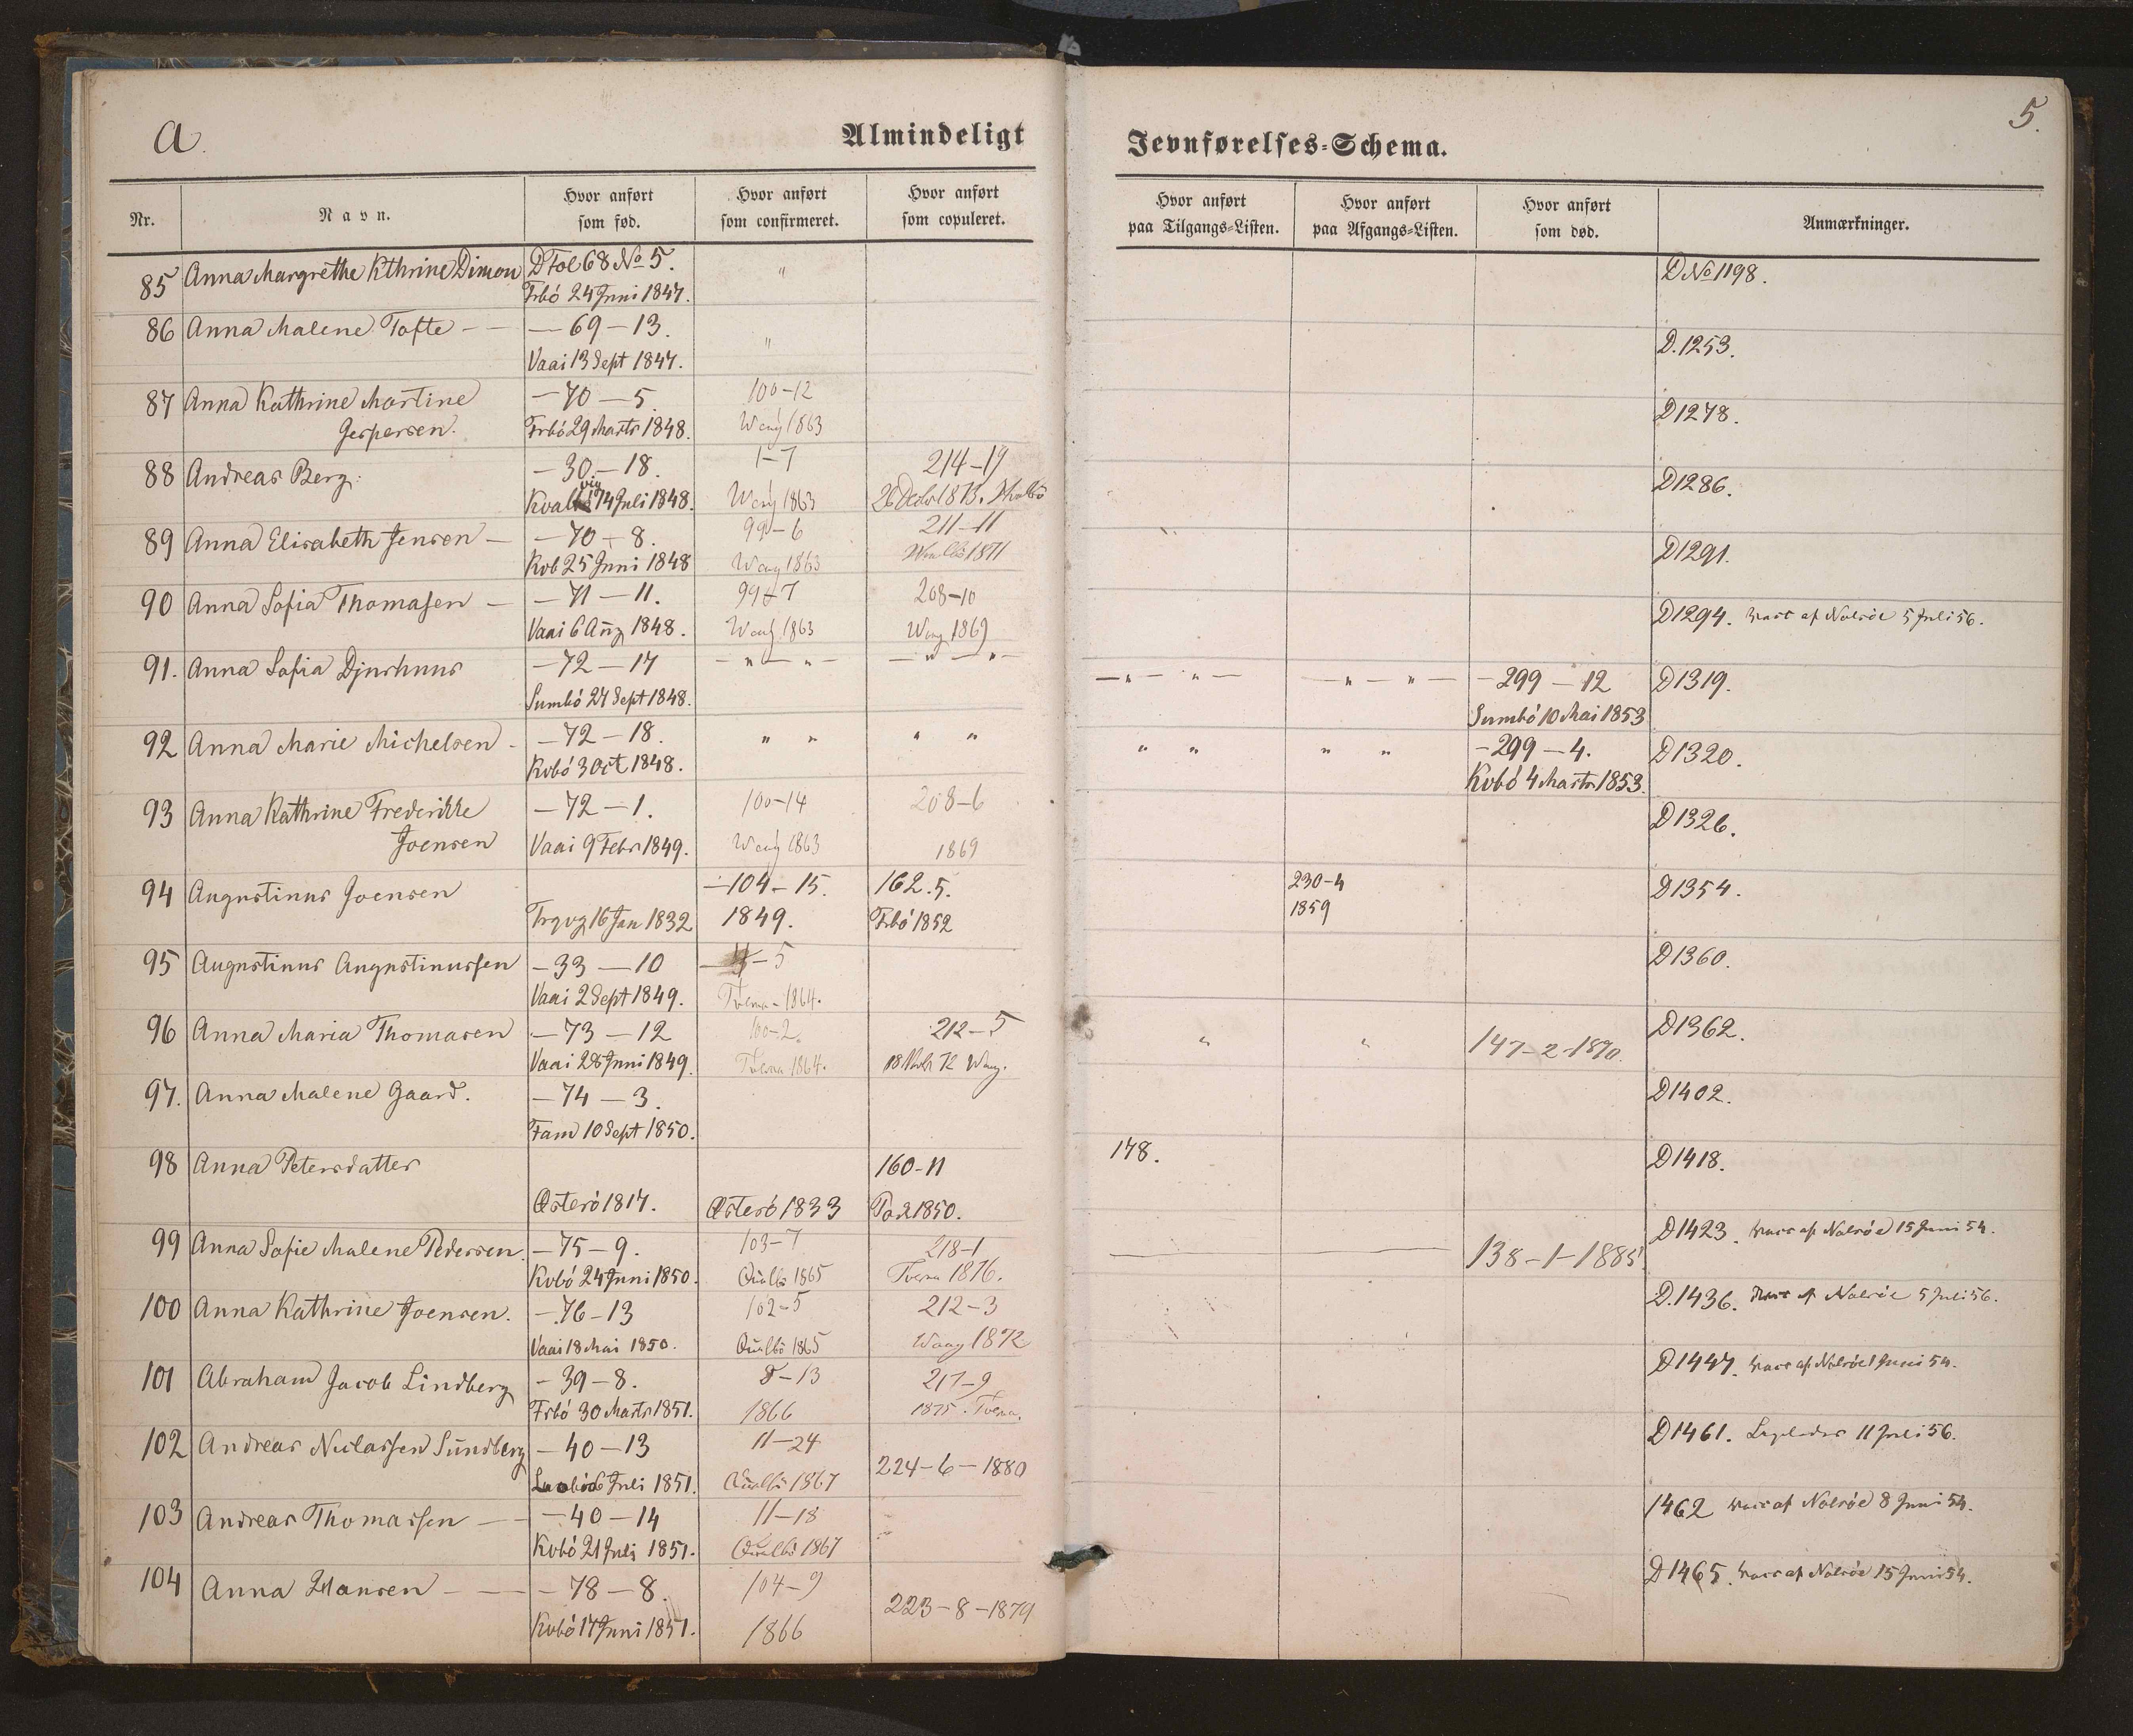 A.
Almindeligt
Jevnførelses-Schema.
5.
Nr.
Navn.
Hvor anført som fød.
Hvor anført som confirmeret.
Hvor anført som copuleret.
Hvor anført paa Tilgangs-Listen.
Hvor anført paa Afgangs-Listen.
Hvor anført som død.
Anmærkninger.
85 Anna Margrethe Kthrine Dimon DFol 68 No 5. " D No 1198.
Frbó 24 Juni 1847.
86 Anna Malene Tofte — — 69 — 13. " D.1253.
Vaai 13 Sept 1847.
87 Anna Kathrine Martine — 70 — 5. 100-12 D1278.
Jespersen. Frbó 29 Marts 1848. Waag 1863
88 Andreas Berg. — 30 — 18. 1-7 214-19 D1286.
vig
14 Juli 1848. Waag 1863 26 Decbr 1873.
89 Anna Elisabeth Jensen — — 70 — 8. 99-6 211-11 D1291.
Kvb 25 Juni 1848 Waag 1863 1871
90 Anna Sofia Thomasen — — 71 — 11. 99-7 208-10 D1294. vacc af Nolsöe 5 Juli 56.
Vaai 6 Aug 1848. Waag 1863 Waag 1869
91. Anna Sofia Djurhuus — 72 — 17 — " — " — — " — " — — " — " — — " — " — — 299 — 12 D1319.
Sumbó 27 Sept 1848. Sumbó 10 Mai 1853
92 Anna Marie Michelsen - — 72 — 18. " " " " " " " " — 299 — 4. D1320.
Kvbó 3 Oct 1848. Kvbó 4 Marts 1853.
93 Anna Kathrine Frederikke — 72 — 1. 100-14 208-6 D1326.
Joensen Vaai 9 Febr 1849. Waag 1863 1869
94 Augustinus Joensen — 104 — 15. 162.5. 230-4 D1354.
Trgvg 16 Jan 1832 1849. Frbó 1852 1859
95 Augustinus Augustinussen — 33 — 10 — 5 D1360.
Vaai 2 Sept 1849. Tveraa - 1864.
96 Anna Maria Thomasen — 73 — 12 100-2. 212-5 " " 147-2-1890. D1362.
Vaai 28 Juni 1849. Tveraa 1864. 18 72 Waag.
97. Anna Malene Gaard. — 74 — 3. D1402.
Fam 10 Sept 1850.
98 Anna Petersdatter 160-11 178. D1418.
Østeró 1817. Østeró 1833 1850.
99 Anna Sofie Malene Pedersen. — 75 — 9. 103-7 218-1 — — 138-1-1885 D1423. vacc af Nolsöe 15 Juni 54.
Kvbó 24 Juni 1850. Qualbö 1865 Tveraa 1876.
100 Anna Kathrine Joensen. — 76 — 13 102-5 212-3 D.1436. vacc af Nolsöe 5 Juli 56.
Vaai 18 Mai 1850. Qualbö 1865 Waag 1872
101 Abraham Jacob Lindberg — 39 — 8. 8-13 217-9 D1447. vacc af Nolsöe 1 Juni 54.
Frbó 30 Marts 1851. 1866 1875. Tveraa.
102 Andreas Niclassen Sundberg — 40 — 13 11-24 224-6-1880 D1461. 11 Juli 56.
6 Juli 1851. Qualbö 1867
103 Andreas Thomassen — — 40 — 14 11-18 1462 vacc af Nolsöe 8 Juni 54.
Kvbó 21 Juli 1851. Qualbö 1867
104 Anna Hansen — — — 78 — 8. 104-9 223-8-1879 D1465. vacc af Nolsöe 15 Juni 54.
Kvbó 17 Juni 1851. 1866